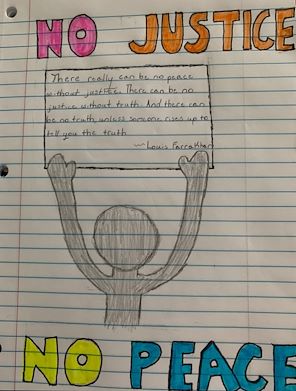 NO JUSTICE
There really can be no peace
without justice. There can be no
justice without truth. And there can
be no truth, unless someone rises up to
tell you the truth
~Louis Farrakhan
NO PEACE